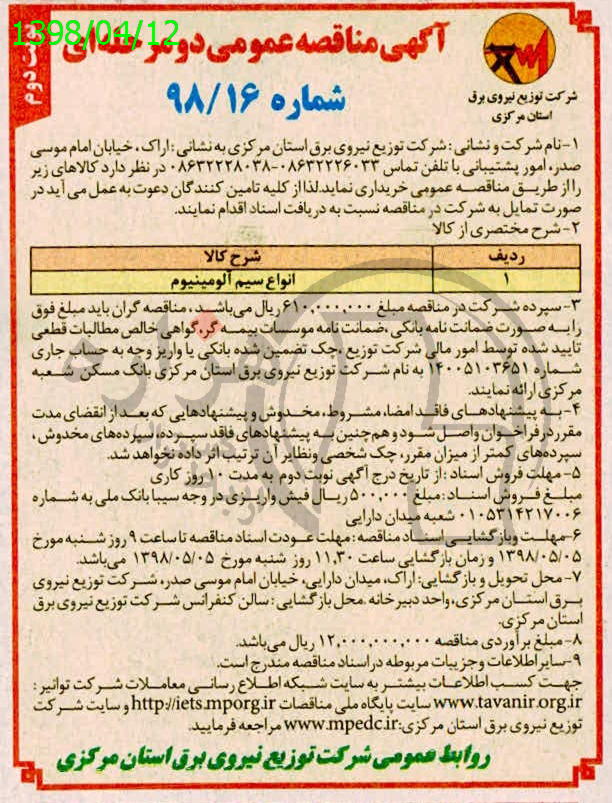 1398/04/12
نوبت دوم
آگهی مناقصه عمومی دو مرحله ای
شماره ۹۸/۱۶
شرکت توزیع نیروی برق
استان مرکزی
۱-نام شرکت و نشانی: شرکت توزیع نیروی برق استان مرکزی به نشانی: اراک، خیابان امام موسی
صدر، امور پشتیبانی با تلفن تماس ۰۸۶۳۲۲۲۶۰۳۳-۰۸۶۳۲۲۲۸۰۳۸ در نظر دارد کالاهای زیر
را از طریق مناقصه عمومی خریداری نماید.لذا از کلیه تامین کنندگان دعوت به عمل می آید در
صورت تمایل به شرکت در مناقصه نسبت به دریافت اسناد اقدام نمایند.
۲-شرح مختصری از کالا
ردیف شرح کالا
۱ انواع سیم آلومینیوم
۳-سپرده شرکت در مناقصه مبلغ ۶۱۰,۰۰۰,۰۰۰ ریال می‌باشد، مناقصه گران باید مبلغ فوق
را به صورت ضمانت نامه بانکی، ضمانت نامه موسسات بیمه گر، گواهی خالص مطالبات قطعی
تایید شده توسط امور مالی شرکت توزیع، چک تضمین شده بانکی یا واریز وجه به حساب جاری
شماره ۱۴۰۰۵۱۰۳۶۵۱ به نام شرکت توزیع نیروی برق استان مرکزی بانک مسکن شعبه
مرکزی ارائه نمایند.
۴-به پیشنهادهای فاقد امضا، مشروط، مخدوش و پیشنهادهایی که بعد از انقضای مدت
مقرر در فراخوان واصل شود و هم‌چنین به پیشنهادهای فاقد سپرده، سپرده‌های مخدوش،
سپرده‌های کمتر از میزان مقرر، چک شخصی ونظایر آن ترتیب اثر داده نخواهد شد.
۵-مهلت فروش اسناد: از تاریخ درج آگهی نوبت دوم به مدت ۱۰ روز کاری
مبلغ فروش اسناد: مبلغ ۵۰۰,۰۰۰ ریال فیش واریزی در وجه سیبا بانک ملی به شماره
۰۱۰۵۳۱۴۲۱۷۰۰۶ شعبه میدان دارایی
۶-مهلت و بازگشایی اسناد مناقصه: مهلت عودت اسناد مناقصه تا ساعت ۹ روز شنبه مورخ
۱۳۹۸/۰۵/۰۵ و زمان بازگشایی ساعت ۱۱,۳۰ روز شنبه مورخ ۱۳۹۸/۰۵/۰۵ می‌باشد.
۷-محل تحویل و بازگشایی: اراک، میدان دارایی، خیابان امام موسی صدر، شرکت توزیع نیروی
برق استان مرکزی، واحد دبیرخانه .محل بازگشایی: سالن کنفرانس شرکت توزیع نیروی برق
استان مرکزی.
۸-مبلغ برآوردی مناقصه ۱۲,۰۰۰,۰۰۰,۰۰۰ ریال می‌باشد.
۹-سایر اطلاعات و جزییات مربوطه در اسناد مناقصه مندرج است.
جهت کسب اطلاعات بیشتر به سایت شبکه اطلاع رسانی معاملات شرکت توانیر:
www.tavanir.org.ir سایت پایگاه ملی مناقصات http://iets.mporg.ir و سایت شرکت
توزیع نیروی برق استان مرکزی:www.mpedc.ir مراجعه فرمایید.
روابط عمومی شرکت توزیع نیروی برق استان مرکزی